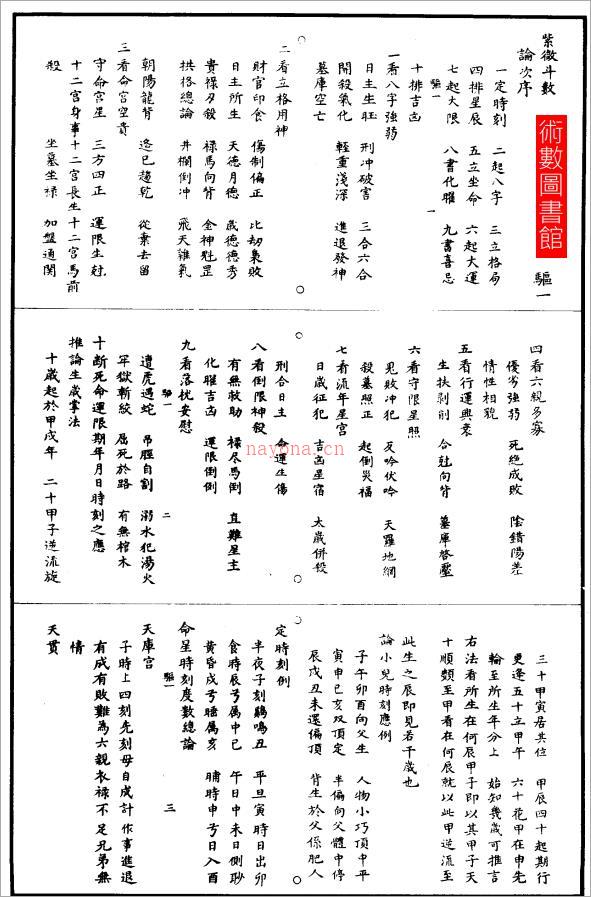 紫微斗數
術數圖書館
驅一
論次序
一定時刻 二起八字 三立格局
四排星辰 五立坐命 六起大運
七起大限 八書化曜 九書喜忌
驅一 一
十排吉凶
一看八字強弱
日主生旺 刑冲破害 三合六合
開殺氣化 輕重淺深 進退發神
墓庫空亡
二看立格用神
財官印食 傷制偏正 比劫梟敗
日主所生 天德月德 歲德德秀
貴祿刃殺 祿馬向背 金神魁罡
拱格總論 井欄倒冲 飛天雜氣
朝陽龍背 遙巳趨乾 從棄去留
三看命宮空貴
守命宮星 三方四正 運限生尅
十二宮身事 十二宮長生 十二宮馬前
殺 坐墓坐祿 加盤通關
四看六親多寡
優劣強弱 死絶成敗 陰錯陽差
情性相貌
五看行運興衰
生扶剝削 合尅向背 墓庫啓壓
六看守限星照
見敗冲犯 反吟伏吟 天羅地網
殺墓照正 起倒災福
七看流年星宮
日歲征犯 吉凶星宿 太歲併殺
刑合日主 命運生傷
八看倒限神殺
有無救助 祿尽馬倒 直難星主
化曜吉凶 運限倒倒
九看落扰安慰
驅一 二
遭虎遇蛇 吊脛自割 溺水犯湯火
牢獄斬絞 屈死於路 有無棺木
十斷死命運限期年月日時刻之應
推論生歲掌法
十歲起於甲戌年 二十甲子逆流旋
三十甲寅居其位 甲辰四十起期行
更逢五十立甲午 六十花甲在申先
輪至所生年分上 始知幾歲可推言
右法看所生在何辰甲子即以其甲子天
十順類至甲看在何辰就以此甲逆流至
此生之辰即見若干歲也
論小兒時刻應例
子午卯酉向父生 人物小巧頂中平
寅申巳亥双頂定 半偏向父體中停
辰戌丑未還偏頂 背生於父係肥人
定時刻例
半夜子刻鷄鳴丑 平旦寅時日出卯
食時辰兮属中巳 午日中未日側聁
黄昏戌兮睡属亥 晡時申兮日入酉
命星時刻度數總論
驅一 三
天庫宫
子時上四刻先刻母自成計作事進退
有成有敗難為六親衣祿不足兄弟無
情
天贯
nayona.cn